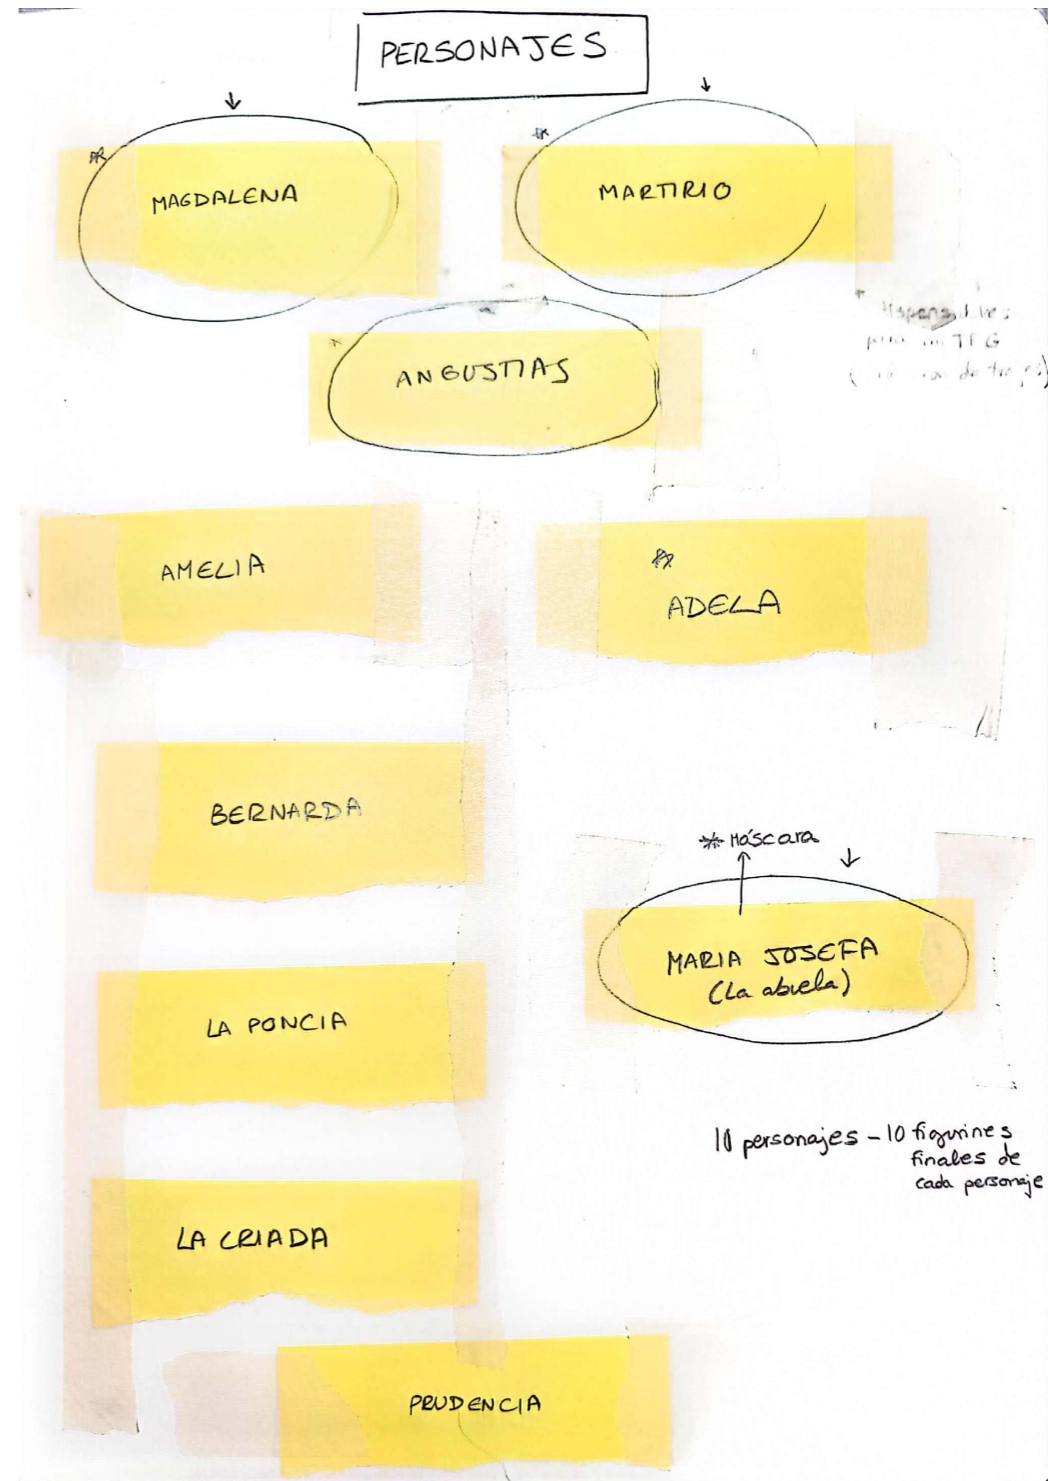 PERSONAJES
MAGDALENA
MARTIRIO
ANGUSTIAS
TFG
AMELIA
ADELA
BERNARDA
* Máscara
MARIA JOSEFA
(La abuela)
LA PONCIA
10 personajes - 10 figurines
finales de
cada personaje
LA CRIADA
PRUDENCIA